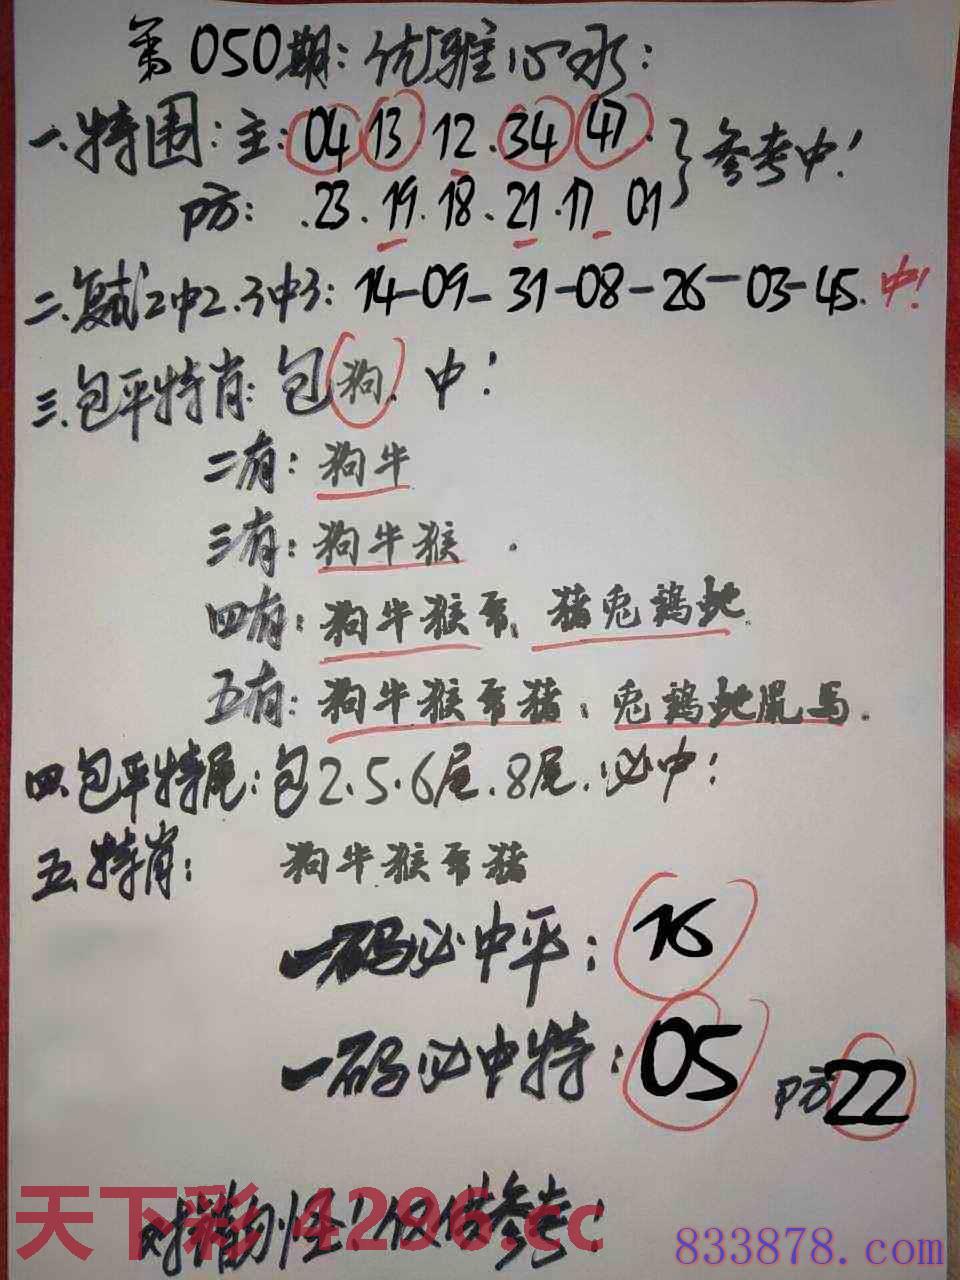 第050期:优雅心水:
一.特围:主:04 13 12.34 47. 参考中!
防: .23.19.18.21.17 01
二.复式2中2.3中3: 14-09-31-08-26-03-45. 中!
三.包平特肖:包狗. 中!
二有:狗牛
三有:狗牛猴.
四有:狗牛猴 猪兔鸡蛇.
五有:狗牛猴 猪;兔鸡蛇鼠马.
四.包平特尾:包2.5.6尾.8尾.必中!
五.特肖: 狗牛.猴 猪
一码必中平:16
一码必中特:05 防22
天下彩 4296.cc
仅供参考!
833878.com